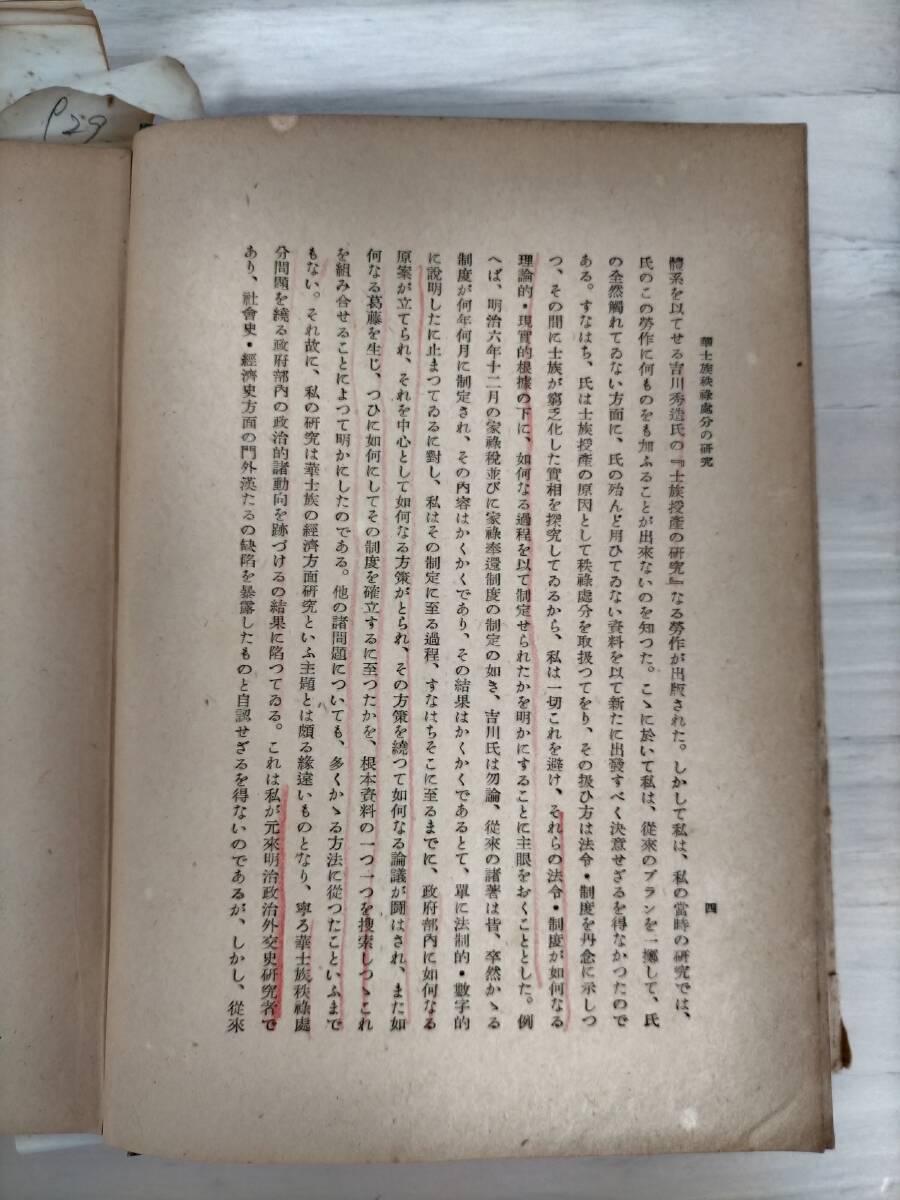 P29
華士族秩祿處分の研究
四
體系を以てせる吉川秀造氏の『士族授產の研究』なる勞作が出版された。しかして私は、私の當時の研究では、
氏のこの勞作に何ものをも加ふることが出來ないのを知つた。こゝに於いて私は、從來のプランを一擲して、氏
の全然觸れてゐない方面に、氏の殆んど用ひてゐない資料を以て新たに出發すべく決意せざるを得なかつたので
ある。すなはち、氏は士族授產の原因として秩祿處分を取扱つてをり、その扱ひ方は法令・制度を丹念に示しつ
つ、その間に士族が窮乏化した實相を探究してゐるから、私は一切これを避け、それらの法令・制度が如何なる
理論的・現實的根據の下に、如何なる過程を以て制定せられたかを明かにすることに主眼をおくこととした。例
へば、明治六年十二月の家祿稅並びに家祿奉還制度の制定の如き、吉川氏は勿論、從來の諸著は皆、卒然かゝる
制度が何年何月に制定され、その內容はかくかくであり、その結果はかくかくであるとて、單に法制的・數字的
に說明したに止まつてゐるに對し、私はその制定に至る過程、すなはちそこに至るまでに、政府部內に如何なる
原案が立てられ、それを中心として如何なる方策がとられ、その方策を繞つて如何なる論議が鬪はされ、また如
何なる葛藤を生じ、つひに如何にしてその制度を確立するに至つたかを、根本資料の一つ一つを搜索しつゝこれ
を組み合せることによつて明かにしたのである。他の諸問題についても、多くかゝる方法に從つたこといふまで
もない。それ故に、私の研究は華士族の經濟方面研究といふ主題とは頗る緣遠いものとなり、寧ろ華士族秩祿處
分問題を繞る政府部內の政治的諸動向を跡づけるの結果に陷つてゐる。これは私が元來明治政治外交史研究者で
あり、社會史・經濟史方面の門外漢たるの缺陷を暴露したものと自認せざるを得ないのであるが、しかし、從來